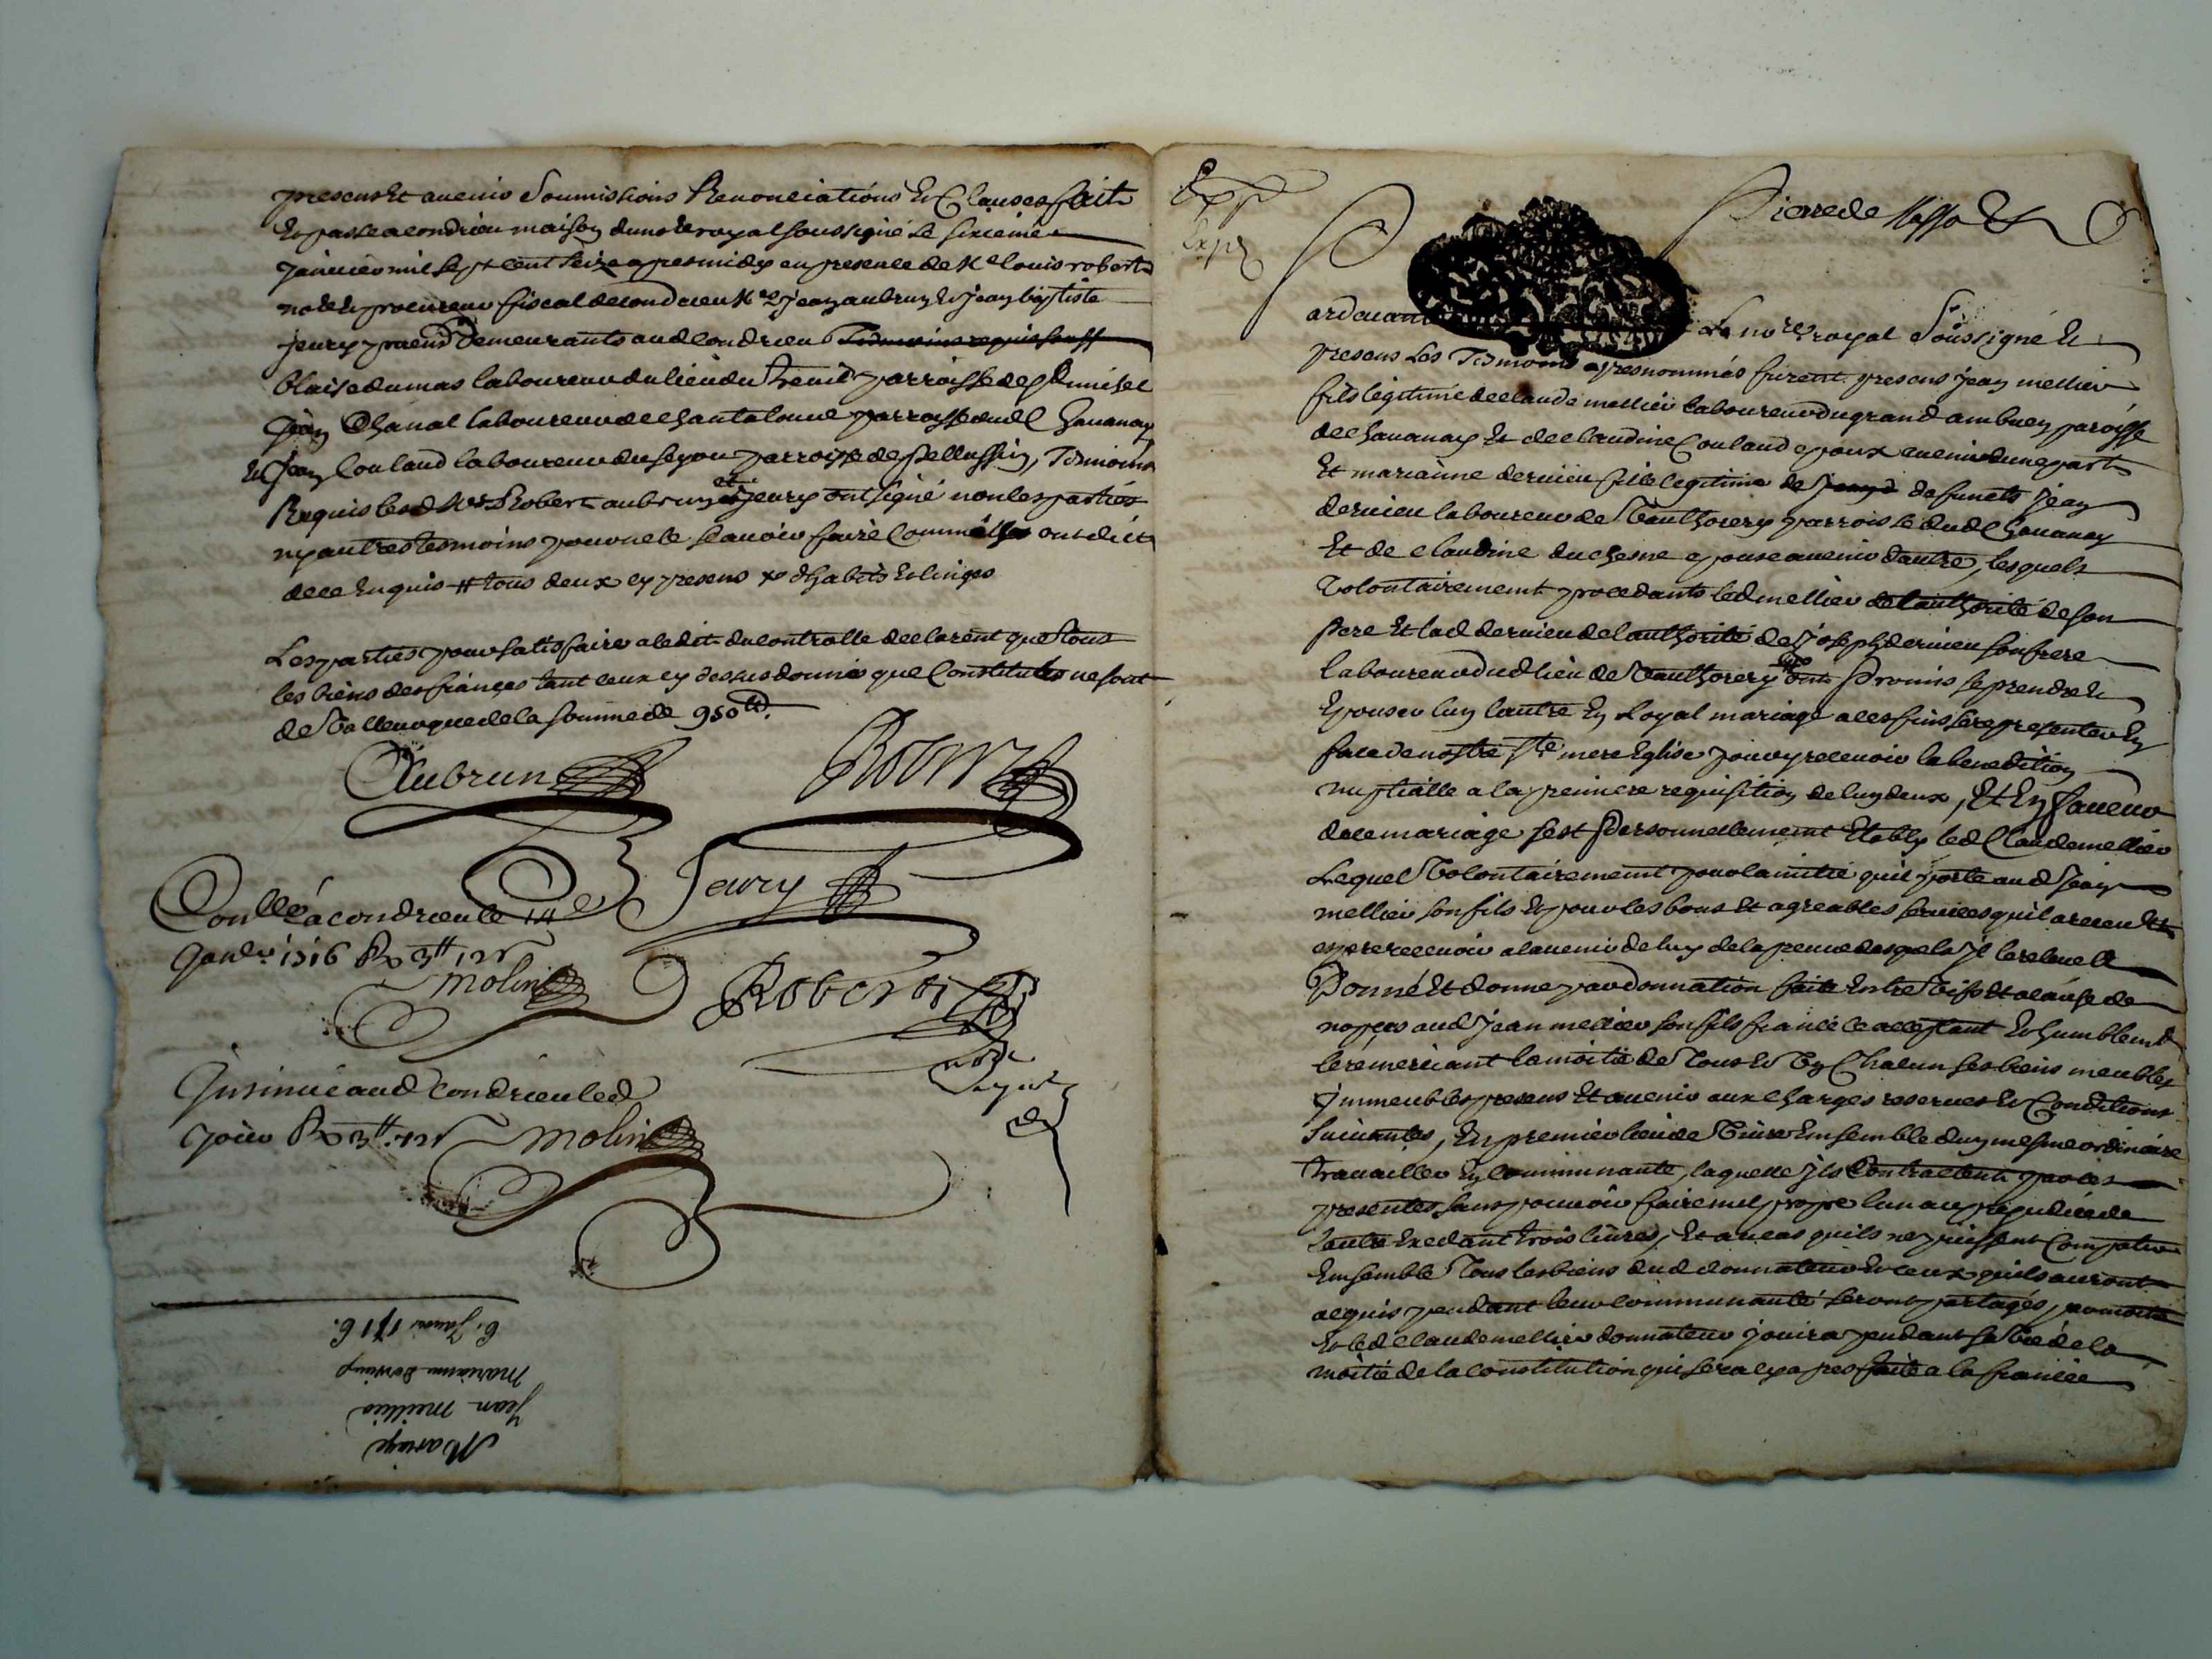 presens et avenir soumissions Renonciations et Clauses fait
et passé a condrieu maison du no.re royal soussigné le sixieme
janvier mil sept cent seize apres midy en presence de M.e louis robert
no.re et procureur fiscal de condrieu M.re jean aubrun et jean baptiste
jeury demeurants aud condrieu Tesmoins requis
blaise dumas laboureur du lieu du parroisse de
jean Chanal laboureur de chantaloue parroisse dud Chavanay
et Jean Couland laboureur du parroisse de pellussin, Tesmoins
Requis lesd M.rs Robert aubrun et jeury ont signé non les parties
ny autres tesmoins pour ne le scavoir faire Comme ont dict
de ce enquis # tous deux cy presens x d'habits et linges
Les parties pour satisfaire a ledit du controlle declarent que tous
les biens des fiancés tant ceux cy dessus donnés que Constitués ne sont
de valleur que de la somme de 950 tt.
Aubrun
Robert
Jeury
Con.llé a condrieu le 14.e
Janv.r 1716 Rx 3 tt 12 s
molin
Robert
no.re
royal
Insinué aud condrieu led
jour Rx 3 tt. 12 s molin
Mariage
Jean meillier
marianne dervieu
6. Janvi 1716.
Expe
Expe
Pierre de
Pardevant Le no.re royal soussigné et
presens Les Tesmoins apres nommés furent presens jean mellier
fils legitime de claude mellier laboureur du grand ambuen paroisse
de chavanay et de claudine Couland epoux avenir d'une part
Et marianne dervieu fille legitime de defuncts jean
dervieu laboureur de Vauthorery parroisse dud Chavanay
Et de claudine duchesne epouse avenir d'autre, lesquels
volontairement procedants led mellier de l'authorité de son
pere Et lad dervieu de l'authorité de joseph dervieu son frere
laboureur dud lieu de Vauthorery ont Promis se prendre et
Epouser l'un l'autre En Loyal mariage a ces fins se representer En
face de nostre s.te mere Eglise pour y recevoir la benediction
nuptialle a la premiere requisition de l'un deux, Et En faveur
de ce mariage s'est Personnellement Etably led Claude mellier
Lequel volontairement pour lamitié quil porte aud Jean
mellier son fils Et pour les bons Et agreables services quil a receu Et
espere recevoir a lavenir de luy de la preuve desquels il le releve a
Donné Et donne par donnation faite Entre vifs Et a cause de
nopces aud Jean mellier son fils fiancé ce acceptant Et humblem.t
le remerciant la moitié de Tous Et Un Chacun ses biens meubles
Immeubles presens Et avenir aux charges reserves Et Conditions
suivantes, En premier lieu de vivre Ensemble d'un mesme ordinaire
travailler En communauté, laquelle ils Contractent par ces
presentes sans pouvoir faire nul propre l'un au prejudice de
l'autre Excedant trois livres, Et au cas quils ne puissent Compatir
Ensemble Tous les biens dud donnateur Et ceux quils auront
acquis pendant leur communauté seront partagés, par moitié
Et led claude mellier donnateur jouira pendant sa vie de la
moitié de la constitution qui sera cy apres faite a la fiancée